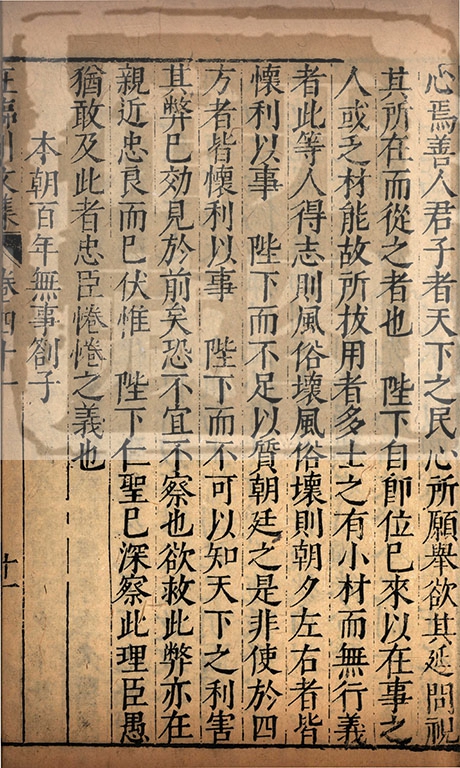 心焉善人君子者天下之民心所願舉欲其延問視
其所在而從之者也　陛下自卽位已來以在事之
人或乏材能故所拔用者多士之有小材而無行義
者此等人得志則風俗壞風俗壞則朝夕左右者皆
懷利以事　陛下而不足以質朝廷之是非使於四
方者皆懷利以事　陛下而不可以知天下之利害
其弊已効見於前矣恐不宜不察也欲救此弊亦在
親近忠良而已伏惟　陛下仁聖已深察此理臣愚
猶敢及此者忠臣惓惓之義也
本朝百年無事劄子
王臨川文集　卷四十一　十一